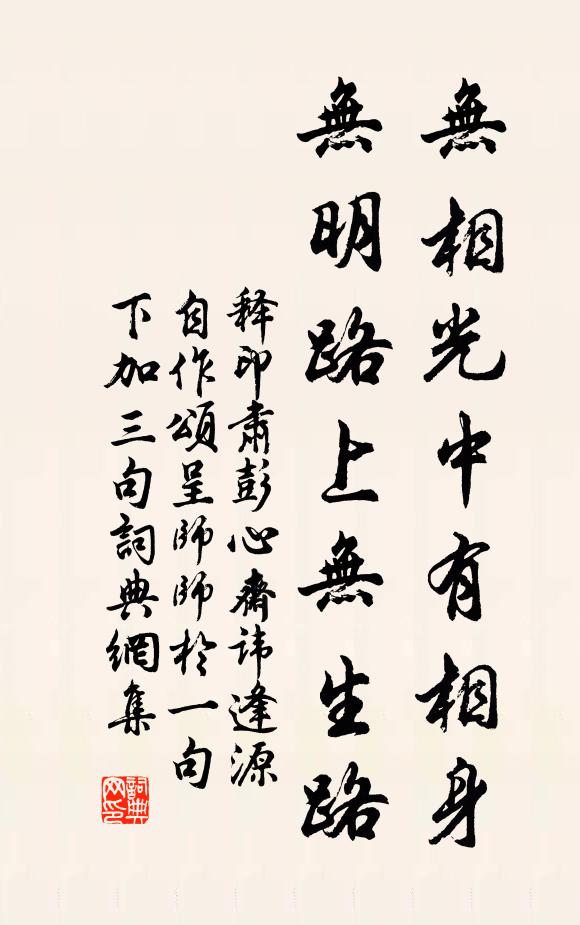 無相光中有相身
無明路上無生路
释印肅彭心齋諱逢源
自作頌呈師師於一句
下加三句詞典網集
詞典网印